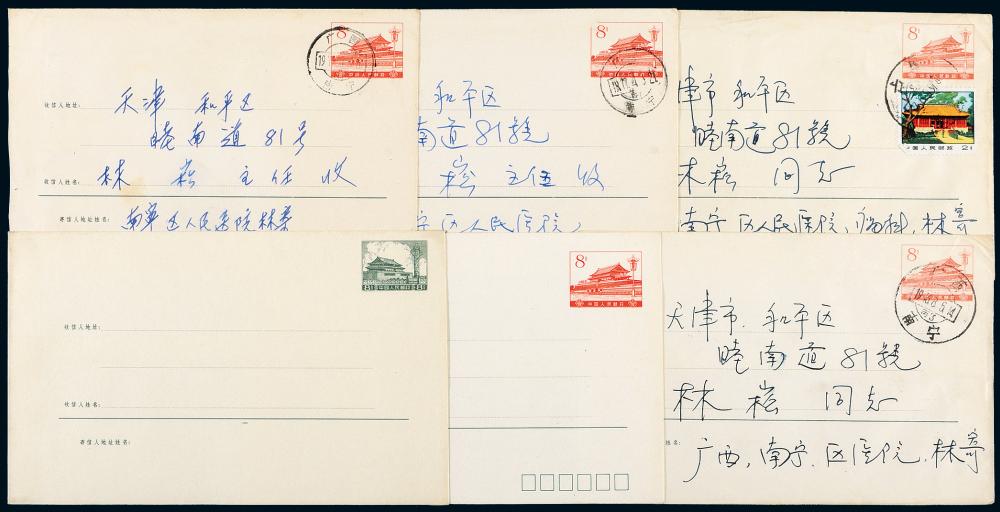 8分
中国人民邮政
广西
收信人地址:
天津 和平区
睦南道81号
收信人姓名:
林 崧 主任 收
寄信人地址姓名:
南寧区人民医院林
8分
中国人民邮政
和平区
南道81號
崧 主任 收
宁区人民医院
8分
中国人民邮政
2分
津市 和平区
睦南道81號
林崧 同志
南宁区人民医院, 林
8分
中国人民邮政
收信人地址:
收信人姓名:
寄信人地址姓名:
8分
中国人民邮政
8分
广西
南宁
天津市. 和平区
睦南道81號
林 崧 同志
姓名:
广西, 南宁. 区医院. 林